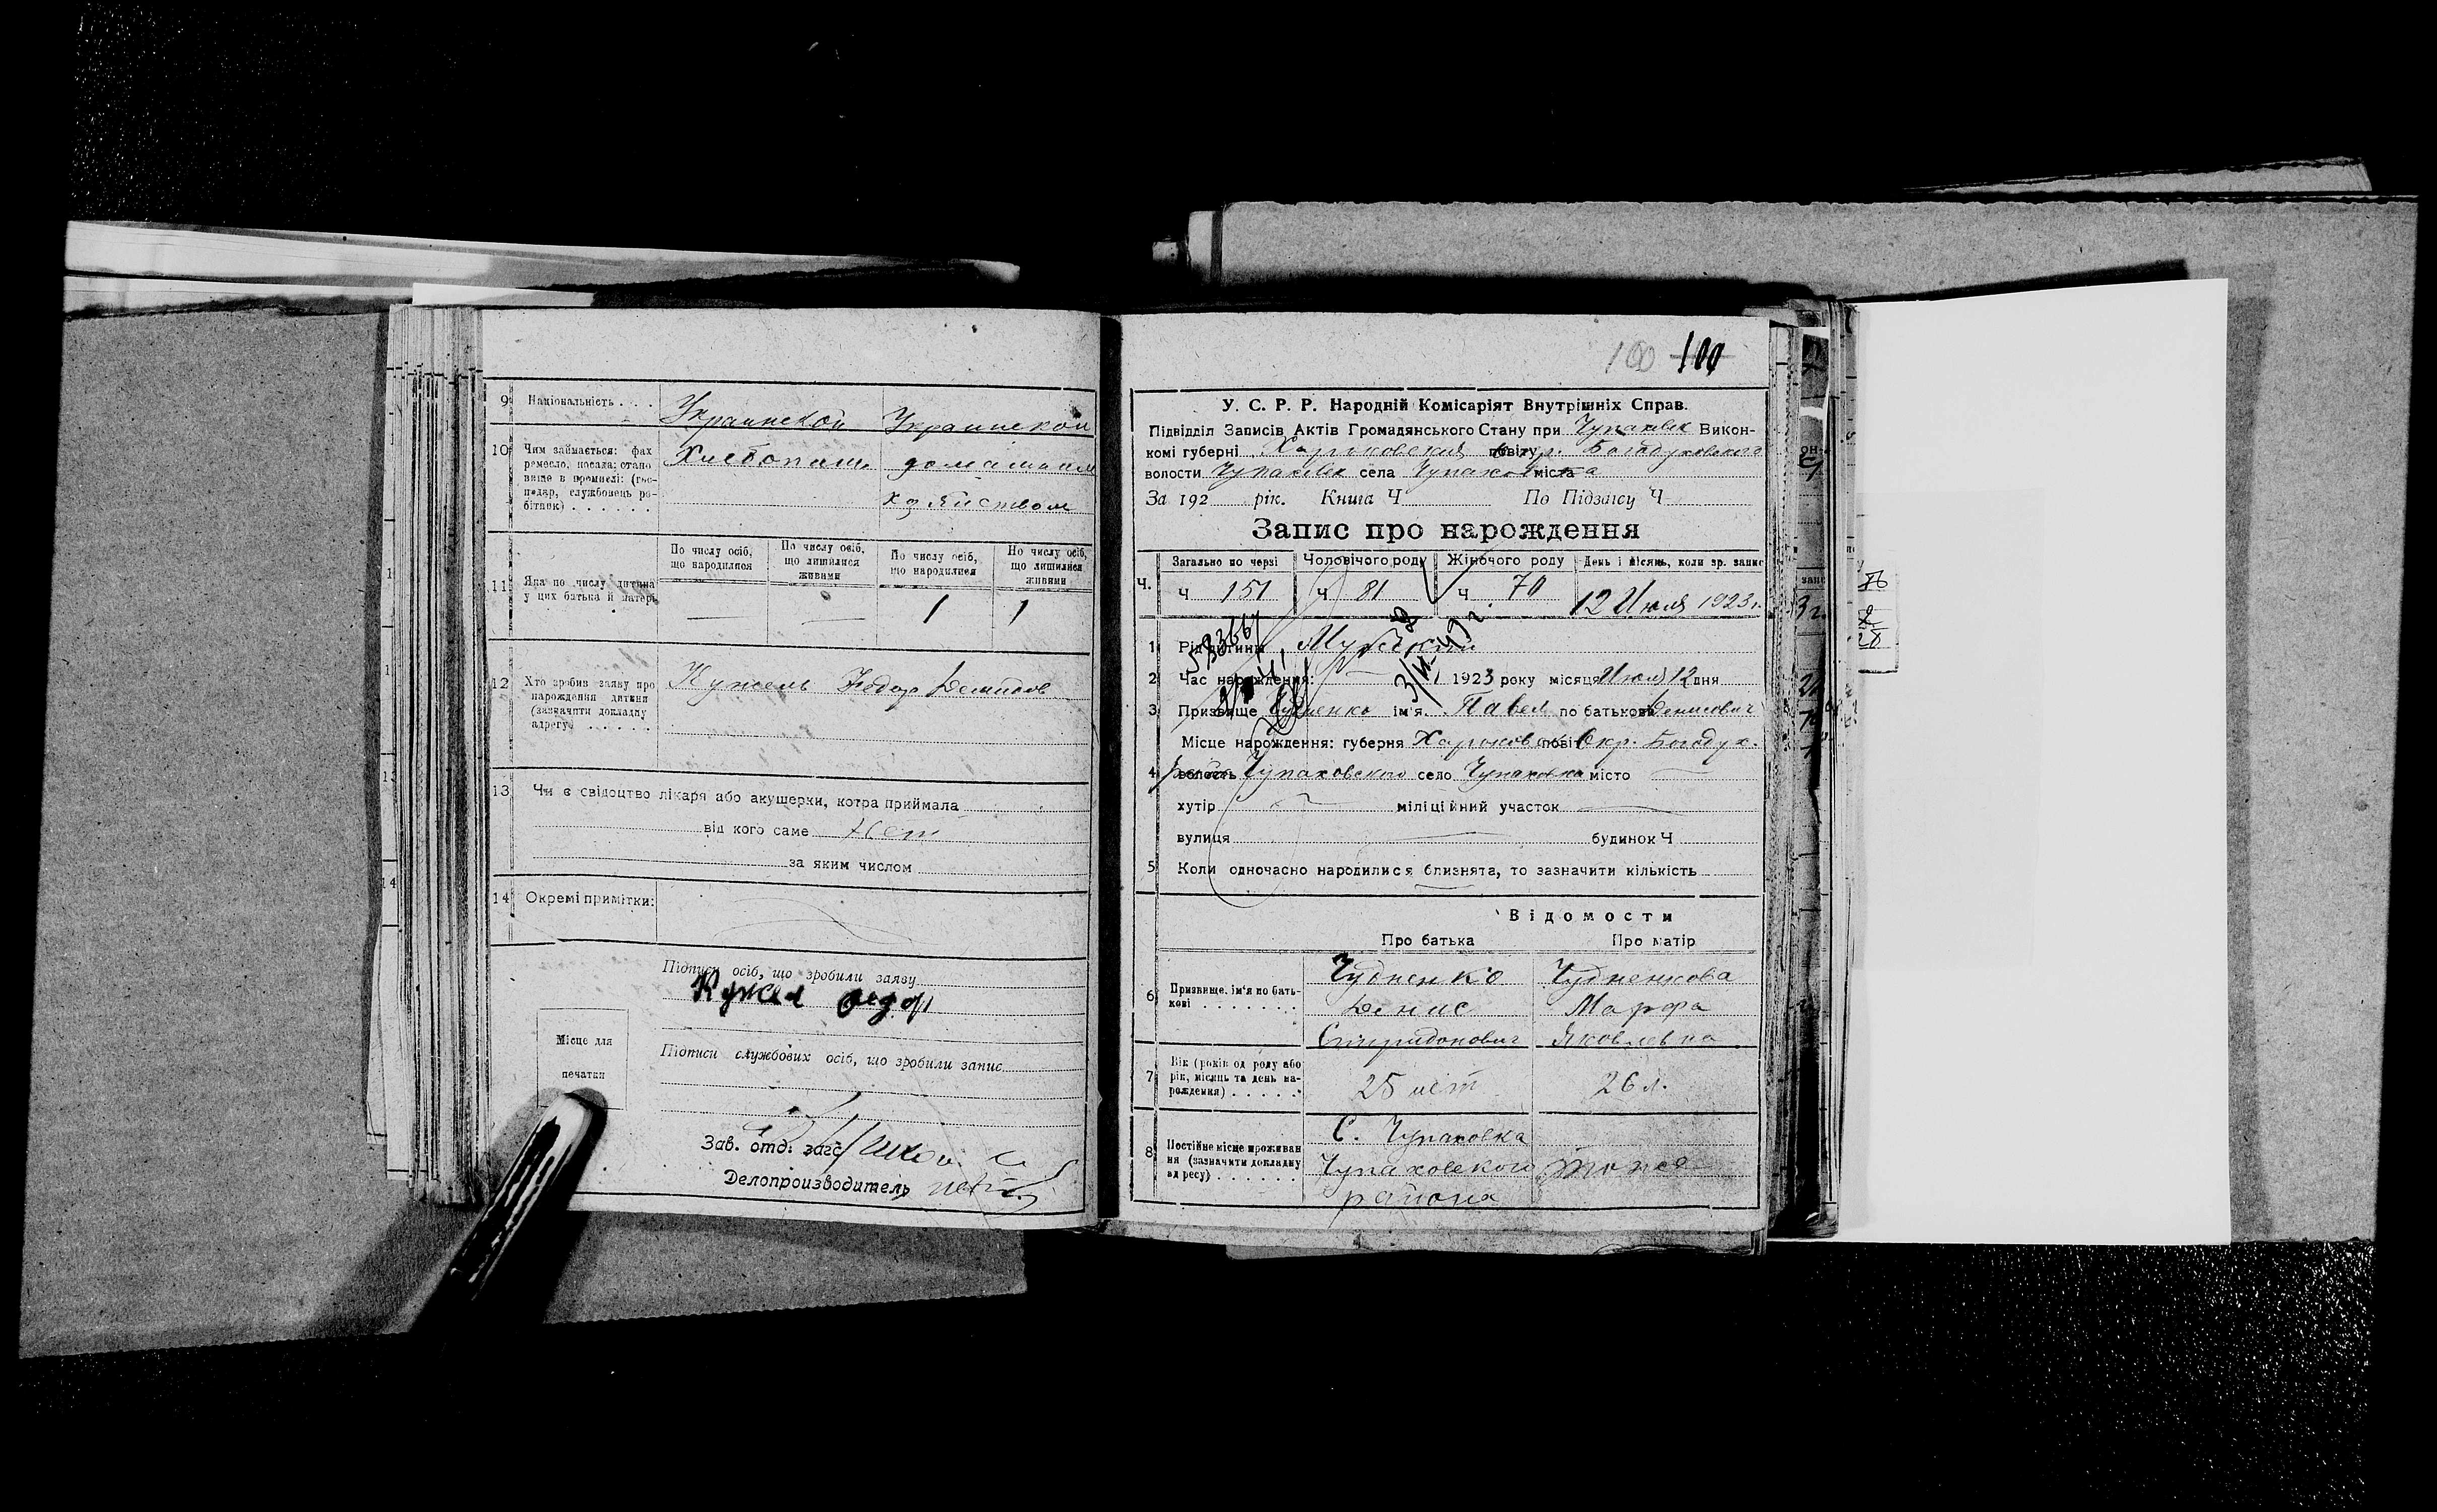 9 Національність . . . . Украинской Украинской
10 Чим займається: фах
ремесло, посада; стано
вище в промислі: (гос-
подар, службовець ро-
бітник) . . . . . . .
Хлебопаш. домашним
хозяйством
11 Яка по числу дитина
у цих батька й матері
По числу осіб,
що народилися
По числу осіб,
що лишилися
живими
По числу осіб,
що народилися
По числу осіб,
що лишилися
живими
— — 1 1
12 Хто зробив заяву про
нарождення дитини
(зазначити докладну
адресу . . . . . .
Кужель Федор Демидов
13 Чи є свідоцтво лікаря або акушерки, котра приймала
від кого саме Нет
за яким числом
14 Окремі примітки:
Підписи осіб, що зробили заяву
Кужел Федор
Місце для
печатки
Підписи службових осіб, що зробили запис
Зав. отд. загс
Делопроизводитель
100 100
У. С. Р. Р. Народній Комісаріят Внутрішніх Справ.
Підвідділ Записів Актів Громадянського Стану при Чупаховск Викон-
комі губерні Харьковская повіту Богодуховского
волости Чупаховск села Чупаховка міста
За 192 рік. Книга Ч По Підзагсу Ч
Запис про нарождення
Ч. Загально по черзі Чоловічого роду Жіночого роду День і місяць, коли зр. запис
Ч 151 Ч 81 Ч 70 12 Июля 1923 г.
1 Рід дитини Мужской
2 Час нарождення: 1923 року місяця Июля 12 дня
3 Призвище Чудненко ім'я. Павел по батькові Денисович
Місце нарождення: губерня Харьковская повіт Окр. Богодух.
4 волость Чупаховского село Чупаховка місто —
хутір — міліційний участок —
вулиця — будинок Ч
5 Коли одночасно народилися близнята, то зазначити кількість
Відомости
Про батька Про матір
6 Призвище, ім'я по бать-
кові . . . . . . . .
Чудненко Чудненкова
Денис Марфа
Спиридонович Яковлевна
7 Вік (років од роду або
рік, місяць та день на-
рождення) . . . . . .
25 лет 26 л.
8 Постійне місце проживан
ня (зазначити докладну
адресу) . . . . . . .
С. Чупаховка
Чупаховского тоже
района